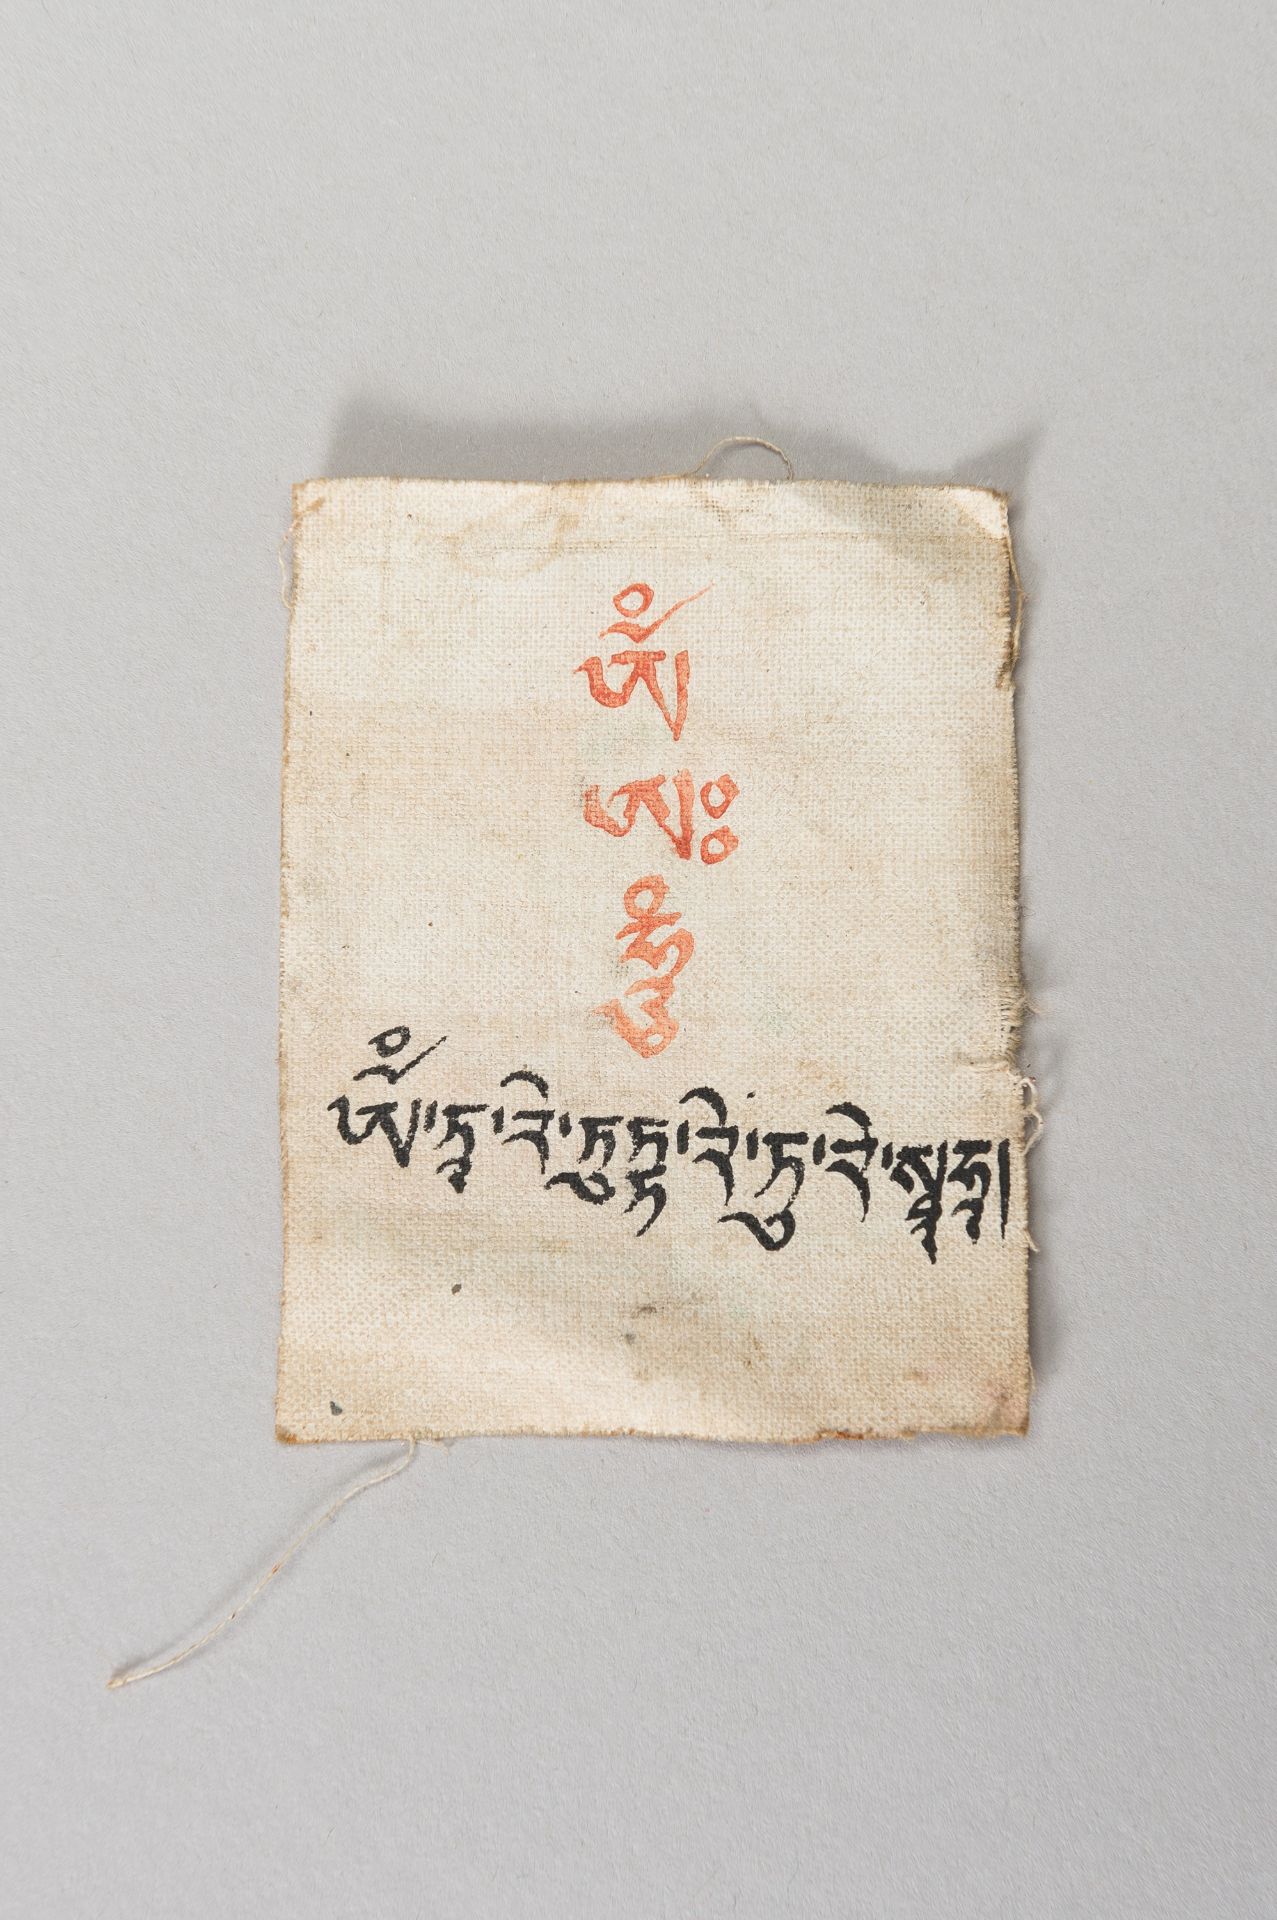 ཨོཾ
ཨཱཿ
ཧཱུྃ
ཨོཾ་ཏཱ་རེ་ཏུཏྟཱ་རེ་ཏུ་རེ་སྭཱཧཱ།